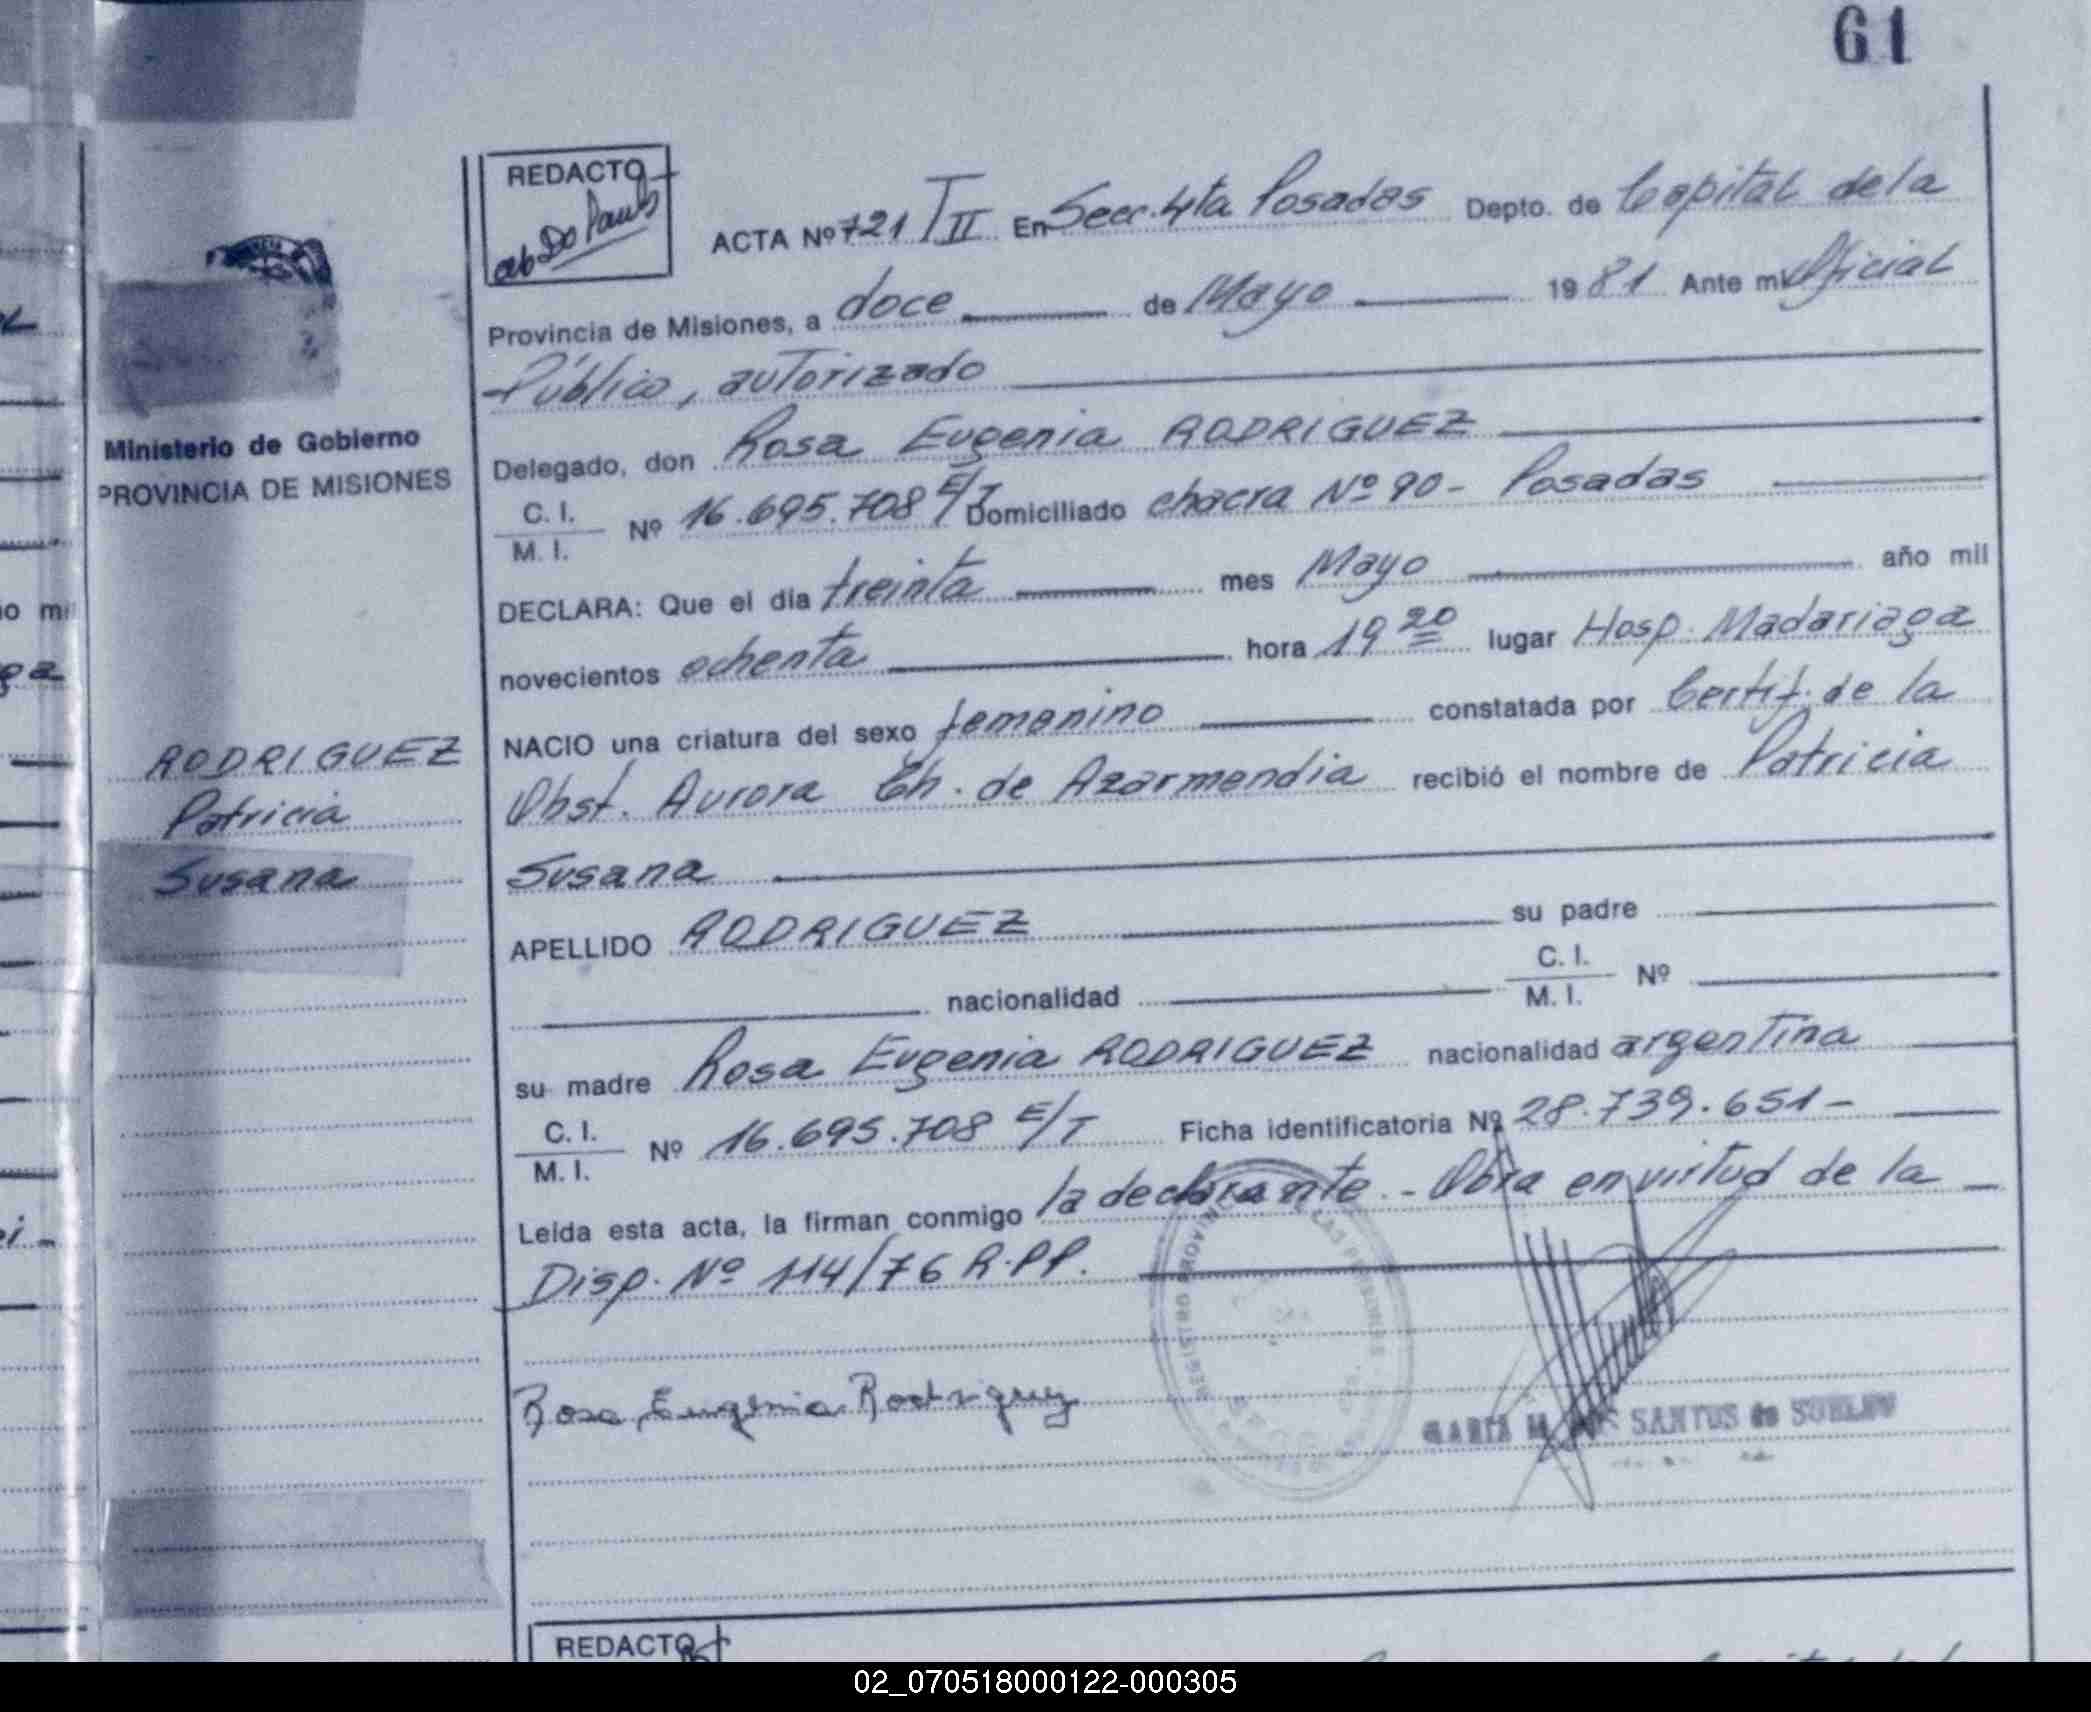 61
REDACTO
ACTA Nº 721 T II En Secc. 4ta Posadas Depto. de Capital de la
Provincia de Misiones, a doce de Mayo 1981 Ante mi Oficial
Público, autorizado
Delegado, don Rosa Eugenia RODRIGUEZ
C. I.
M. I.
Nº 16.695.708 E/T Domiciliado chacra Nº 90 - Posadas
DECLARA: Que el día treinta mes Mayo año mil
novecientos ochenta hora 19 20 lugar Hosp. Madariaga
NACIO una criatura del sexo femenino constatada por Certif. de la
Obst. Aurora Ch. de Azarmendia recibió el nombre de Patricia
Susana
APELLIDO RODRIGUEZ su padre
nacionalidad
C. I.
M. I.
Nº
su madre Rosa Eugenia RODRIGUEZ nacionalidad argentina
C. I.
M. I.
Nº 16.695.708 E/T Ficha identificatoria Nº 28.739.651-
Leída esta acta, la firman conmigo la declarante. - Obra en virtud de la
Disp. Nº 114/76 R.PP.
Rosa Eugenia Rodriguez
SANTOS de
REGISTRO PROVINCIAL DE LAS PERSONAS
Ministerio de Gobierno
PROVINCIA DE MISIONES
RODRIGUEZ
Patricia
Susana
REDACTO
02_070518000122-000305